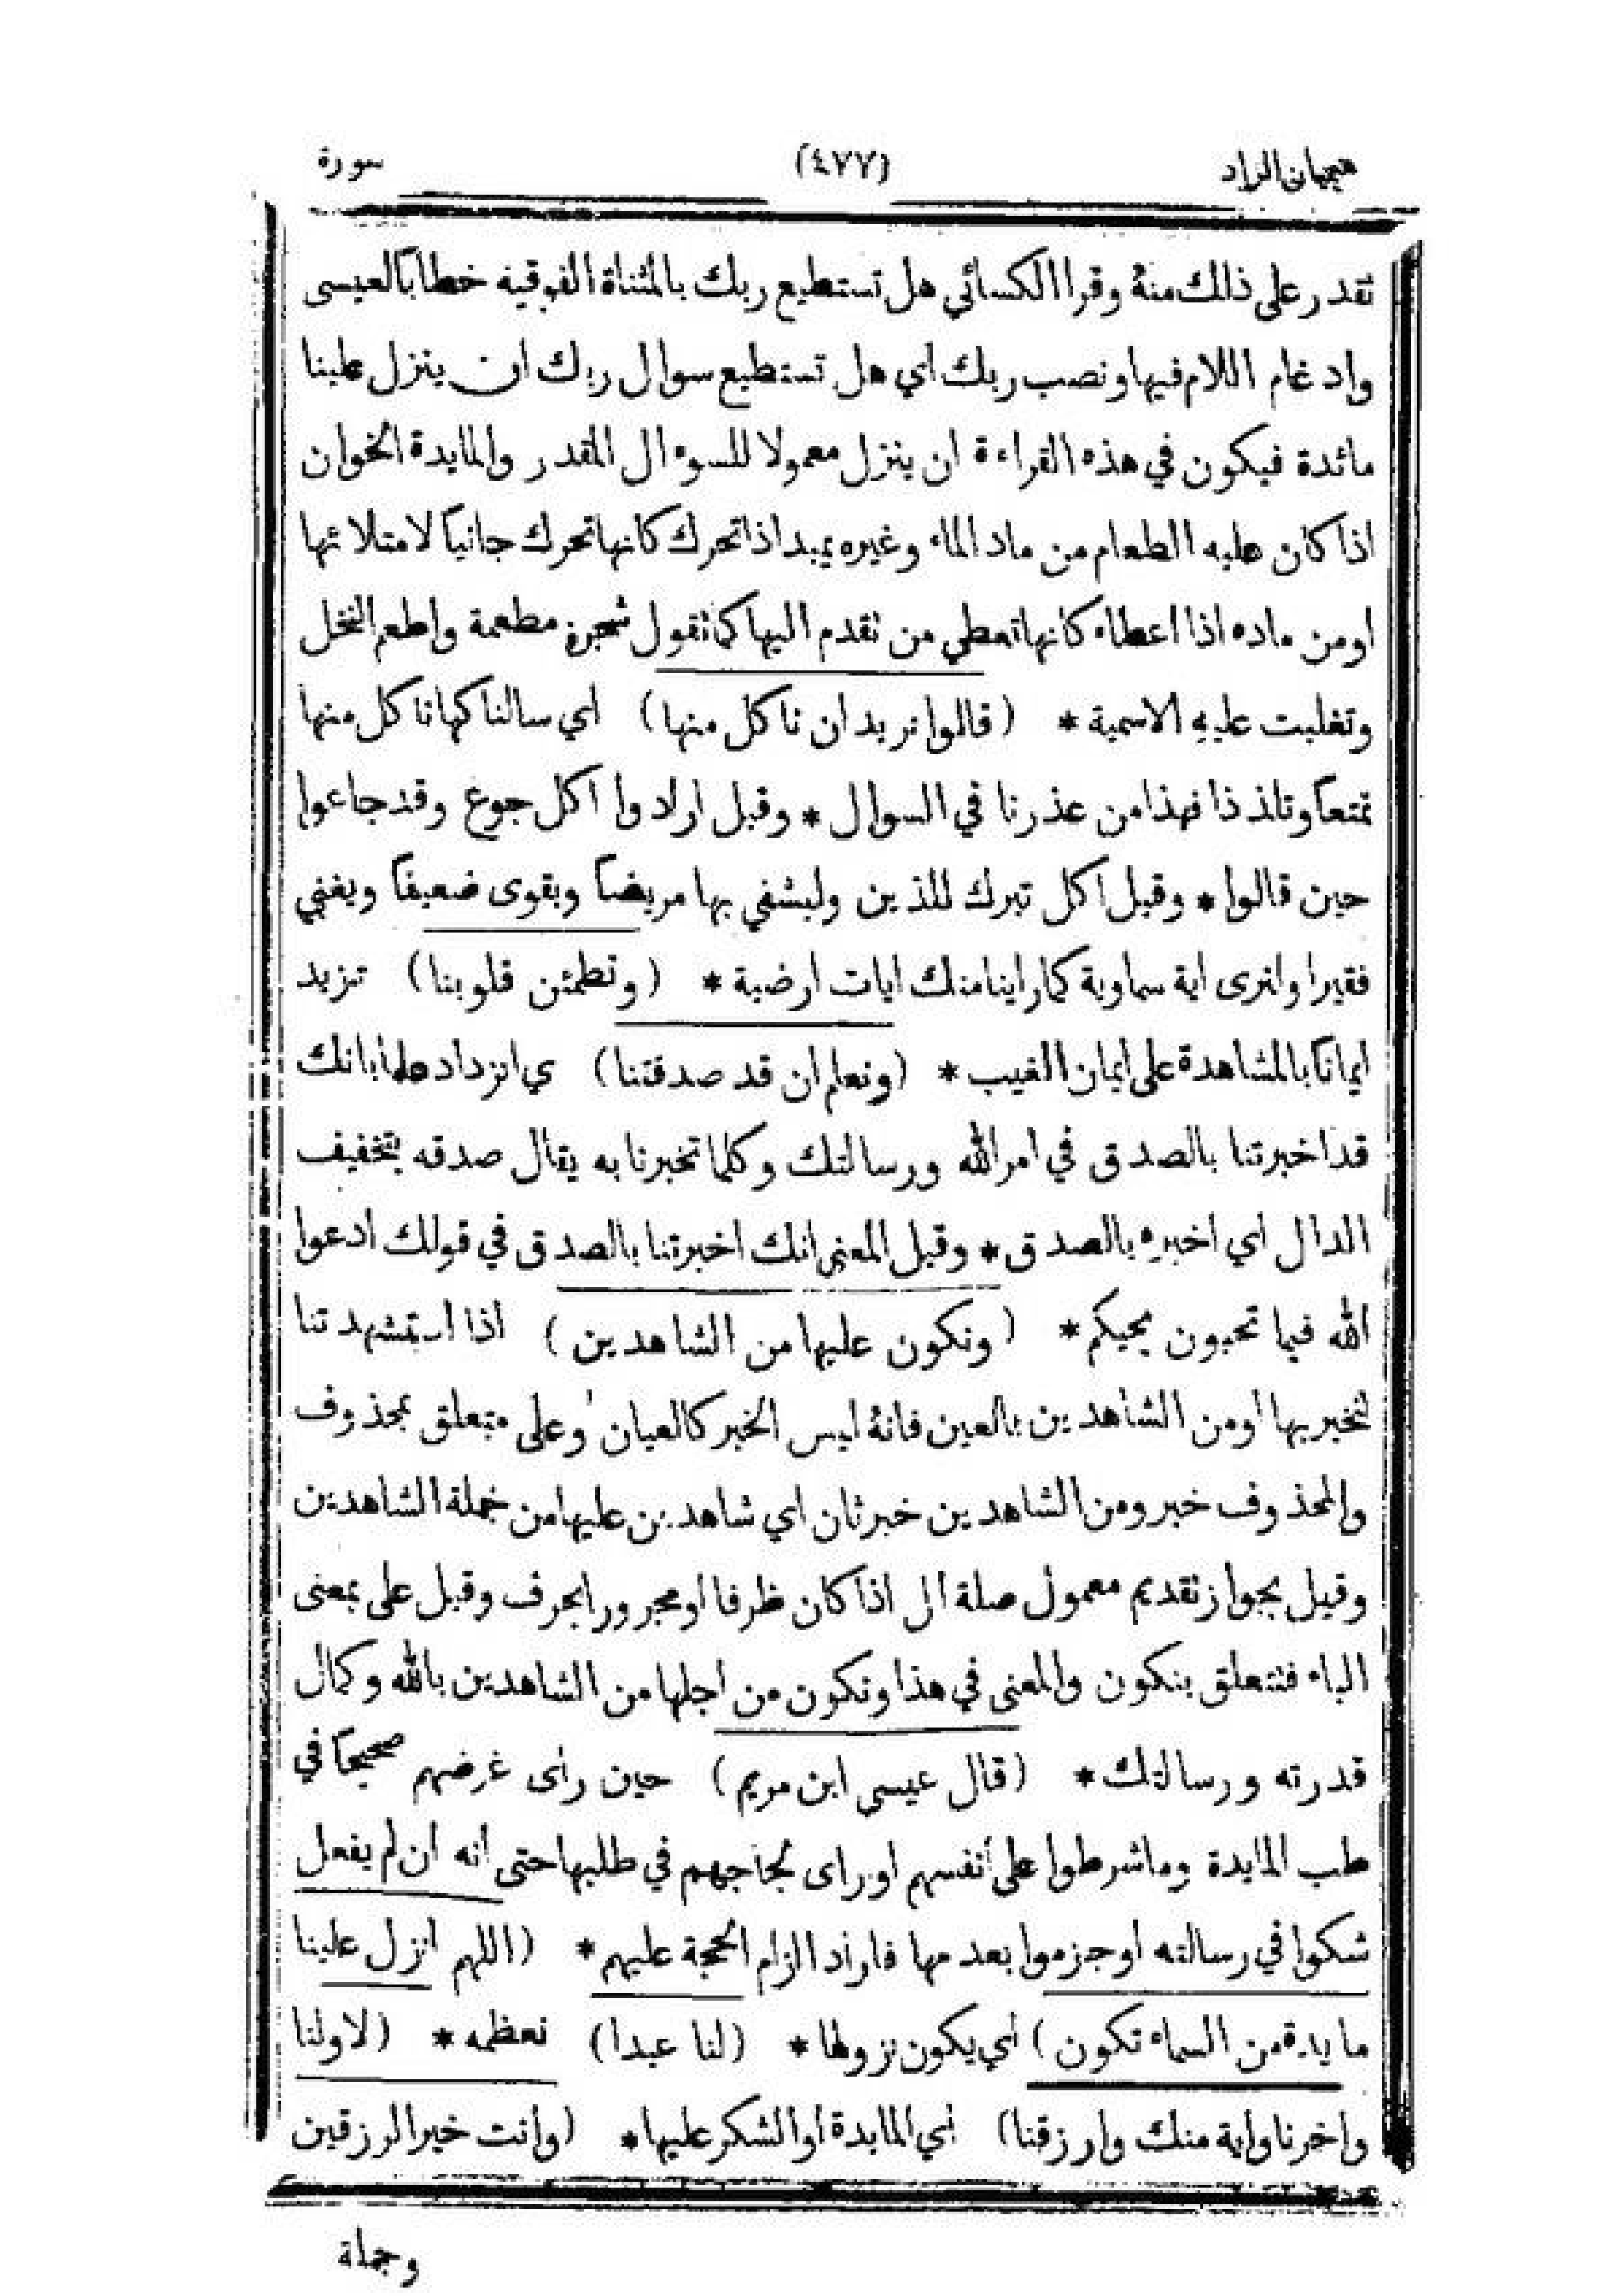 هيميان الزاد (٤٧٧) سورة
تقدر على ذلك منهُ وقرا الكسائي هل تستطيع ربك بالمثناة الفوقيه خطاباً لعيسى
وادغام اللام فيها ونصب ربك اي هل تستطيع سوال ربك ان ينزل علينا
مائدة فيكون في هذه القراءة ان ينزل معمولا للسوءال المقدر والمايدة الخوان
اذا كان عليه الطعام من ماد الماء وغيره يميد اذا تحرك كانها تحرك جانياً لامتلائها
او من ماده اذا اعطاه كانها تعطي من تقدم اليها كما تقول شجرة مطعمة واطعم النخل
وتغلبت عليهِ الاسمية * (قالوا نريد ان ناكل منها) اي سالناكها ناكل منها
تمتعاً وتلذذا فهذا من عذرنا في السوال * وقيل ارادوا اكل جوع وقد جاعوا
حين قالوا * وقيل اكل تبرك للذين وليشفي بها مريضاً ويقوى ضعيفاً ويغني
فقيرا ولنرى اية سماوية كما راينا منك ايات ارضية * (وتطمئن قلوبنا) تزيد
ايماناً بالمشاهدة على ايمان الغيب * (ونعلم ان قد صدقتنا) ي انزداد علماً بانك
قد اخبرتنا بالصدق في امر الله ورسالتك وكلما تخبرنا به يقال صدقه بتخفيف
الدال اي اخبره بالصدق * وقيل المعنى انك اخبرتنا بالصدق في قولك ادعوا
الله فيما تحبون يجيكم * (ونكون عليها من الشاهدين) اذا استشهدتنا
لنخبر بها او من الشاهدين بالعين فانهُ ليس الخبر كالعيان وعلى متعلق بمحذوف
والمحذوف خبر ومن الشاهدين خبر ثان اي شاهدين عليها من جملة الشاهدين
وقيل بجواز تقديم معمول صلة ال اذا كان ظرفا او مجرورا بحرف وقيل على بمعنى
الباء فتتعلق بنكون والمعنى في هذا ونكون من اجلها من الشاهدين بالله وكمال
قدرته ورسالتك * (قال عيسى ابن مريم) حين راى غرضهم صحيحاً في
طب المايدة وما شرطوا على أنفسهم او راى لجاجهم في طلبها حتى انه ان لم يفعل
شكوا في رسالته او جزموا بعدمها فاراد الزام الحجة عليهم * (اللهم انزل علينا
مايدة من السماء تكون) اي يكون نزولها * (لنا عيدا) نعظمه * (لاولنا
واخرنا واية منك وارزقنا) اي المايدة او الشكر عليها * (وانت خير الرزقين
وجملة